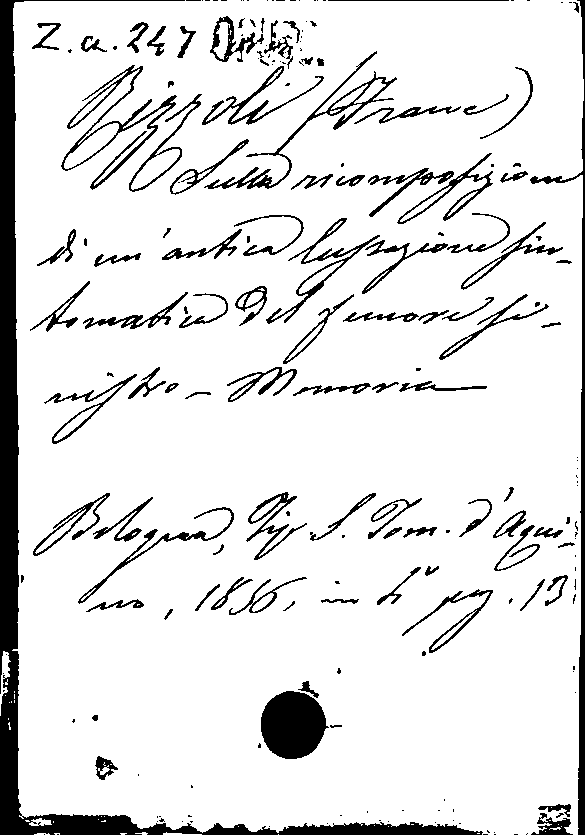 Z. a. 247
Rizzoli (Franc)
Sulla ricomposizione
di un'antica lussazione sin-
tomatica del femore si-
nistro - Memoria
Bologna, Tip. S. Tom. d'Aqui-
no, 1856, in 4° pag. 13